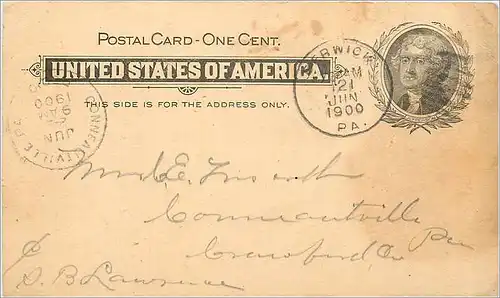 POSTAL CARD - ONE CENT.
UNITED STATES OF AMERICA.
THIS SIDE IS FOR THE ADDRESS ONLY.
RWICK
AM
21
JUN
1900
PA.
CONNEAUTVILLE PA.
JUN
9 AM
1900
E.
Conneautville
Crawford Co Pen
S. B. Lawrence